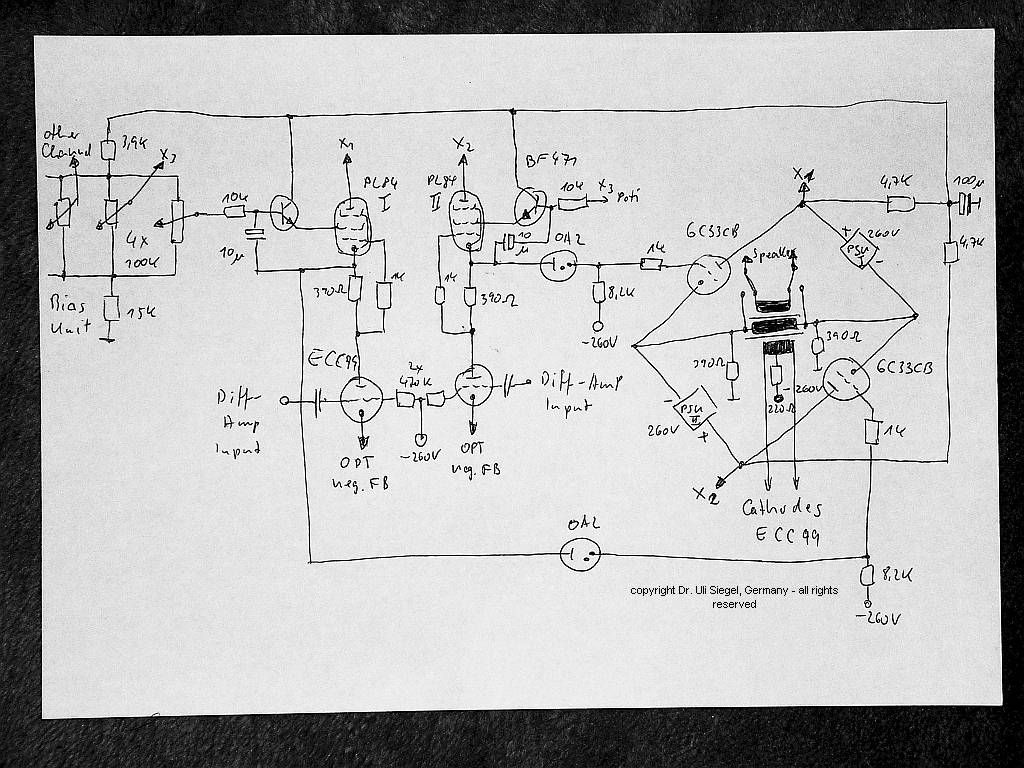 other
Channel
3,9K
X3
10K
4x
100K
10µ
Bias
Unit
15K
X1
PL84
I
X2
PL84
II
BF471
10K
X3
Poti
10
µ
OA2
1K
1K
390Ω
390Ω
8,2K
-260V
1K
6C33CB
X1
4,7K
100µ
4,7K
+ 260V
PSU
I
-
Speaker
390Ω
390Ω
6C33CB
-260V
220Ω
1K
-
PSU
II
260V
+
X2
Cathodes
ECC99
ECC99
2x
470K
Diff-
Amp
Input
Diff-Amp
Input
OPT
neg. FB
-260V
OPT
neg. FB
OA2
8,2K
-260V
copyright Dr. Uli Siegel, Germany - all rights
reserved